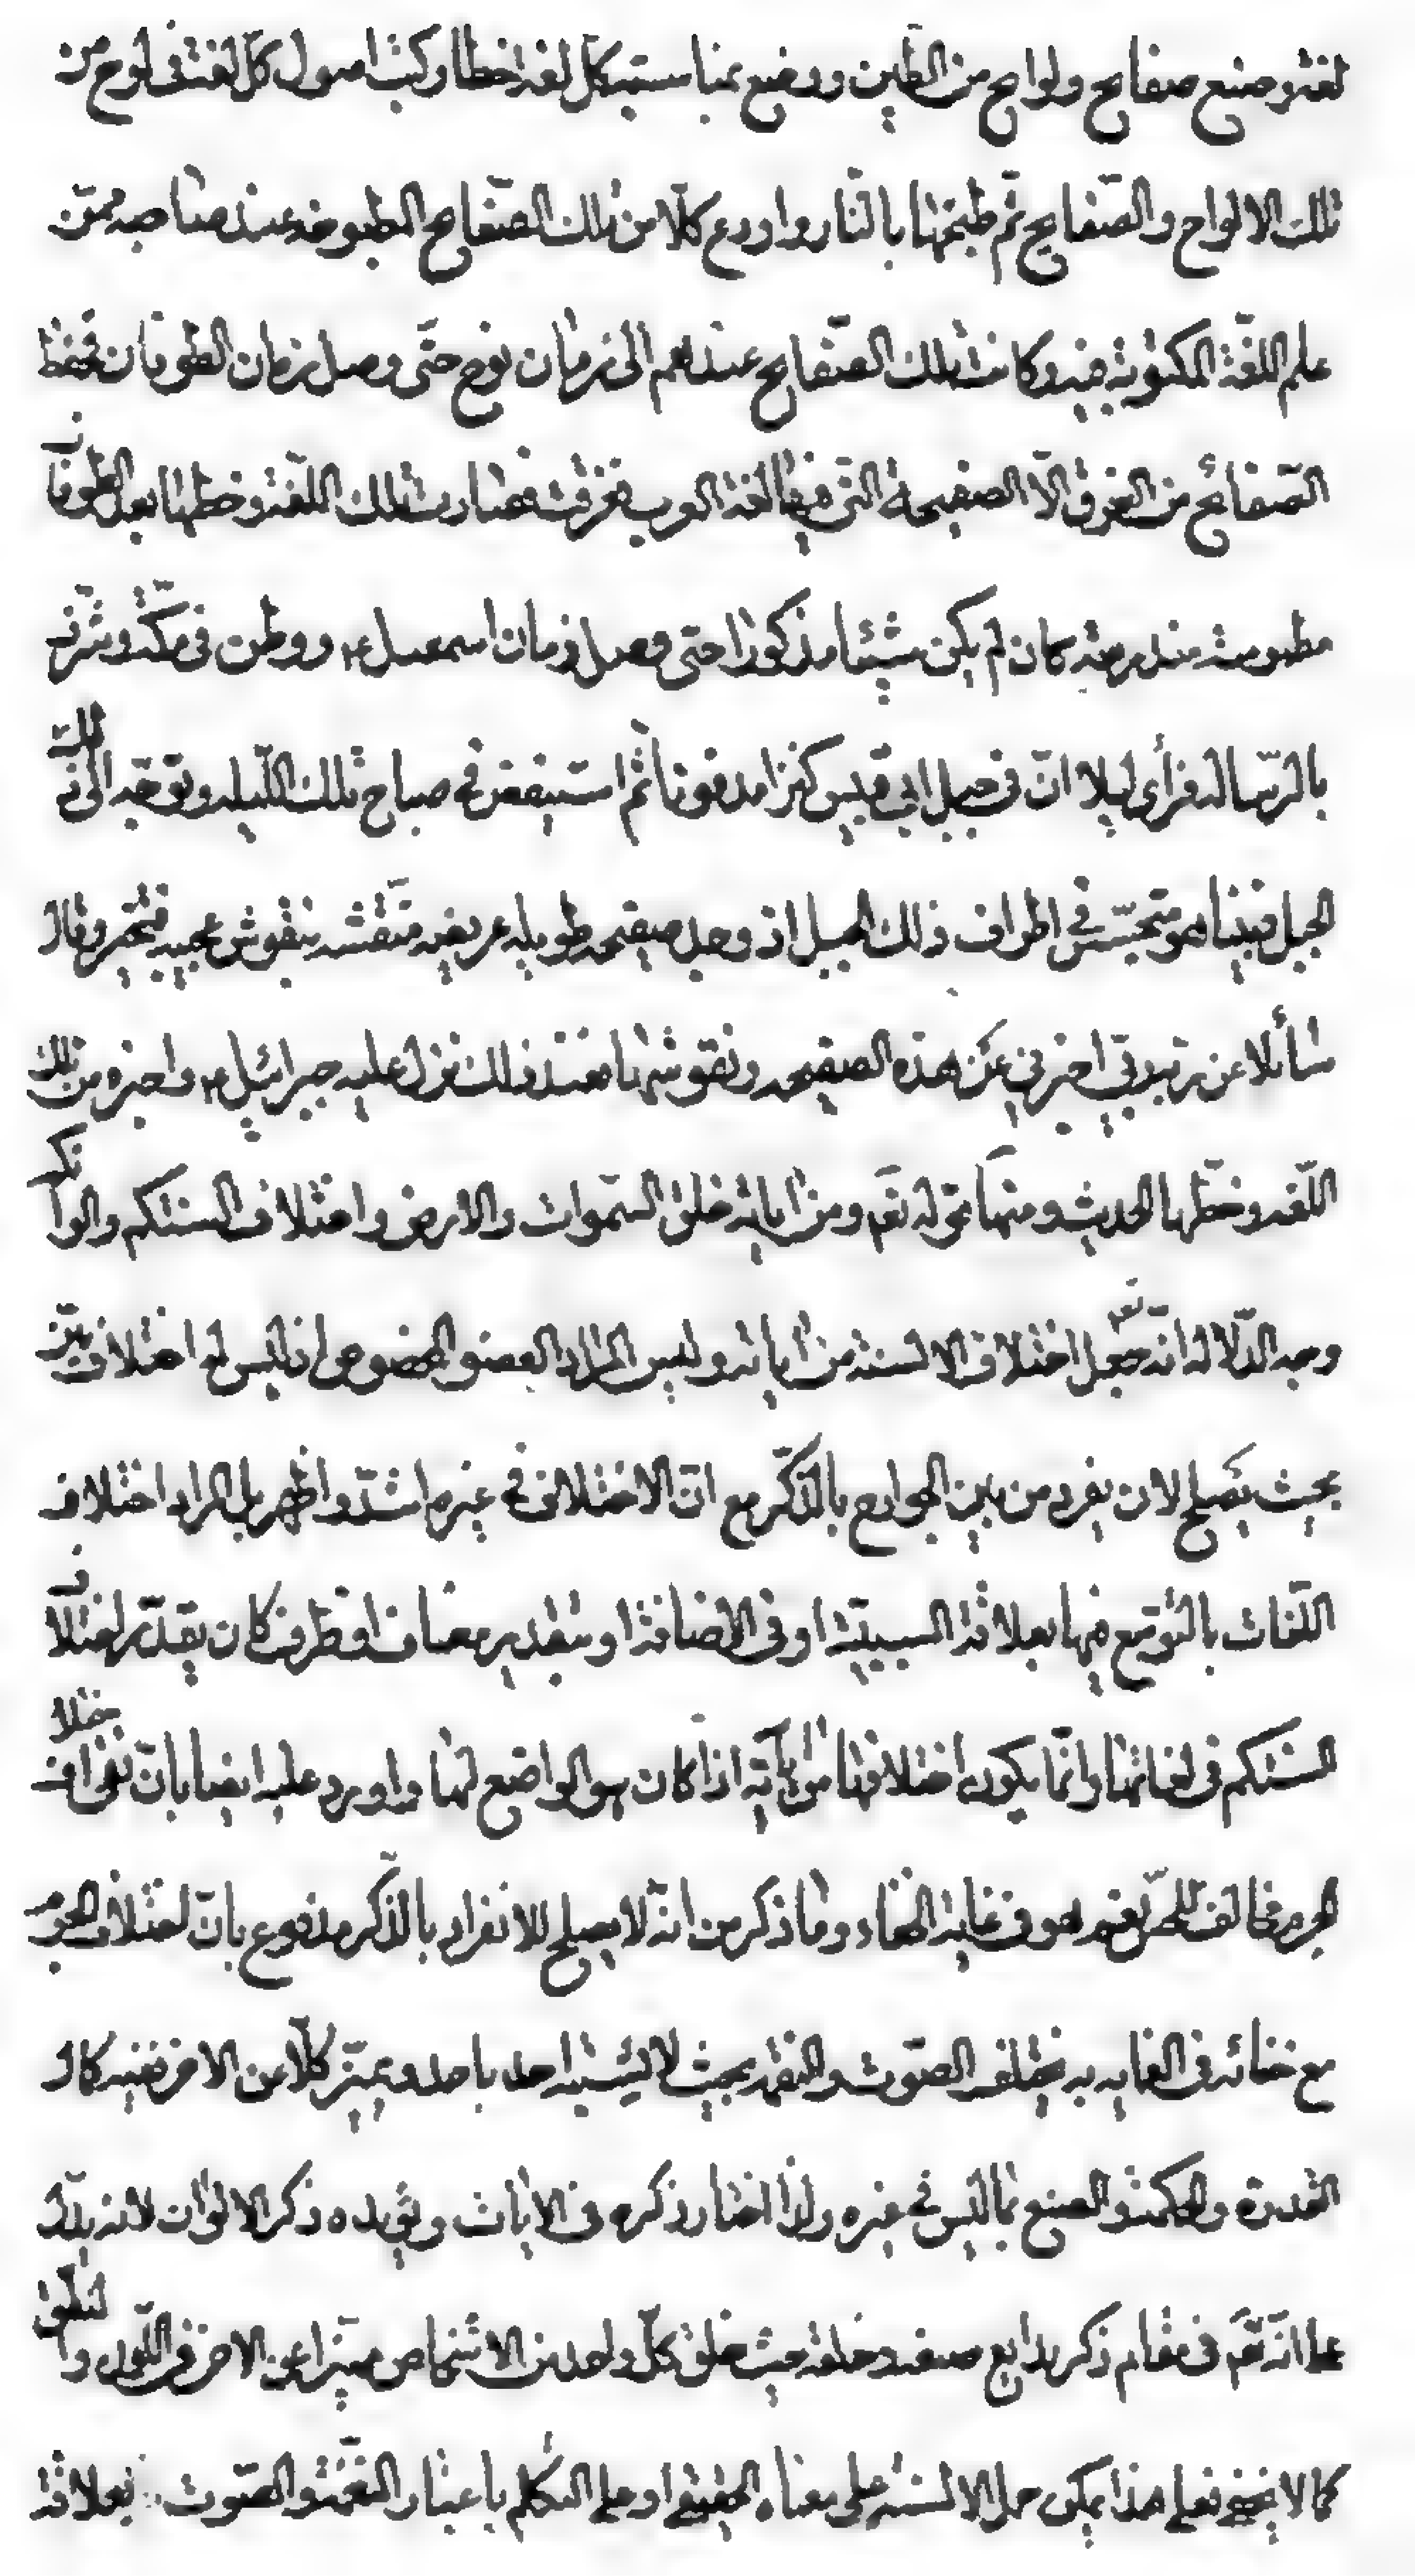 لغة وصنع صفايح ولواح من الطين ووضع بمناسبة كل لغة خطا وكتب اصول كل لغة فى لوح من
تلك الالواح والصّفايح ثم طبخها بالنّار واودع كلّا من تلك الصّفايح المطبوخة عند صاحبه ممّن
علم اللغّة المكتوبة فيه وكانت تلك الصّفايح عندهم الى زمان نوح حتّى وصل زمان الطوفان فحفظ
الصّفائح من الغرق الّا الصفيحة التى فيها لغة العرب فغرقت فصارت تلك اللغة وخطها بعد الطوفان
مطموسة مندرسة كان لم يكن شيئا مذكورا حتى وصل زمان اسمعيل ع ووطن فى مكّة وشرّف
بالرّسالة فرأى ليلا انّ فى جبل ابى قبيس كنزا مدفونا ثم استيقض فى صباح تلك اللّيلة وتوجّه الى ذلك
الجبل فبينا هو متجسّس فى اطراف ذلك الجبل اذ وجد صفيحة طويلة عريضة منقّشة بنقوش عجيبة فتحيّر وقال
سائلا عن ربّه ربّى اخبرنى عن هذه الصفيحة ونقوشها فعند ذلك نزل عليه جبرائيل ع واخبره من تلك
اللّغة وخطّها الحديث ومنها قوله تعم ومن اياته خلق السّموات والارض واختلاف السنتكم والوانكم
وجه الدّلالة انّه تعم جعل اختلاف الالسنة من اياته وليس المراد العضو المخصوص اذ ليس له اختلاف بيّن
بحيث يصلح لان يفرد من بين الجوارح بالذكّر مع انّ الاختلاف فى غيره اشدّ واظهر بل المراد اختلاف
اللّغات بالتّوسّع فيها بعلاقة السببيّة او فى الاضافة او بتقدير مضاف او ظرف كان يقدّر اختلاف
السنتكم فى لغاتها وانّما يكون اختلافها من اياته اذا كان هو الواضع لها واورد عليه ايضا بان نفى اختلاف
الجرم مخالف للحسّ نعم هو فى غاية الخفاء وما ذكر من انّه لا يصلح للانفراد بالذّكر مدفوع بانّ اختلاف الجرم
مع خفائه فى الغاية به يختلف الصّوت والنغمة بحيث لا يشتبه احد باحد ويميّز كلّا عن الاخر ففيه كمال
القدرة والحكمة والصنع ما ليس فى غيره ولذا اختار ذكره فى الايات ويؤيده ذكر الالوان لانه يدلّ
على انّه تعم فى مقام ذكر بدايع صنعه وخلقه حيث خلق كلّ واحد من الاشخاص مميّزا عن الاخر فى اللّون والنطق
كما لا يخفى فعلى هذا يمكن حمل الالسنة على معناه الحقيقى او على التكلم باعتبار النّغمة والصّوت بعلاقة